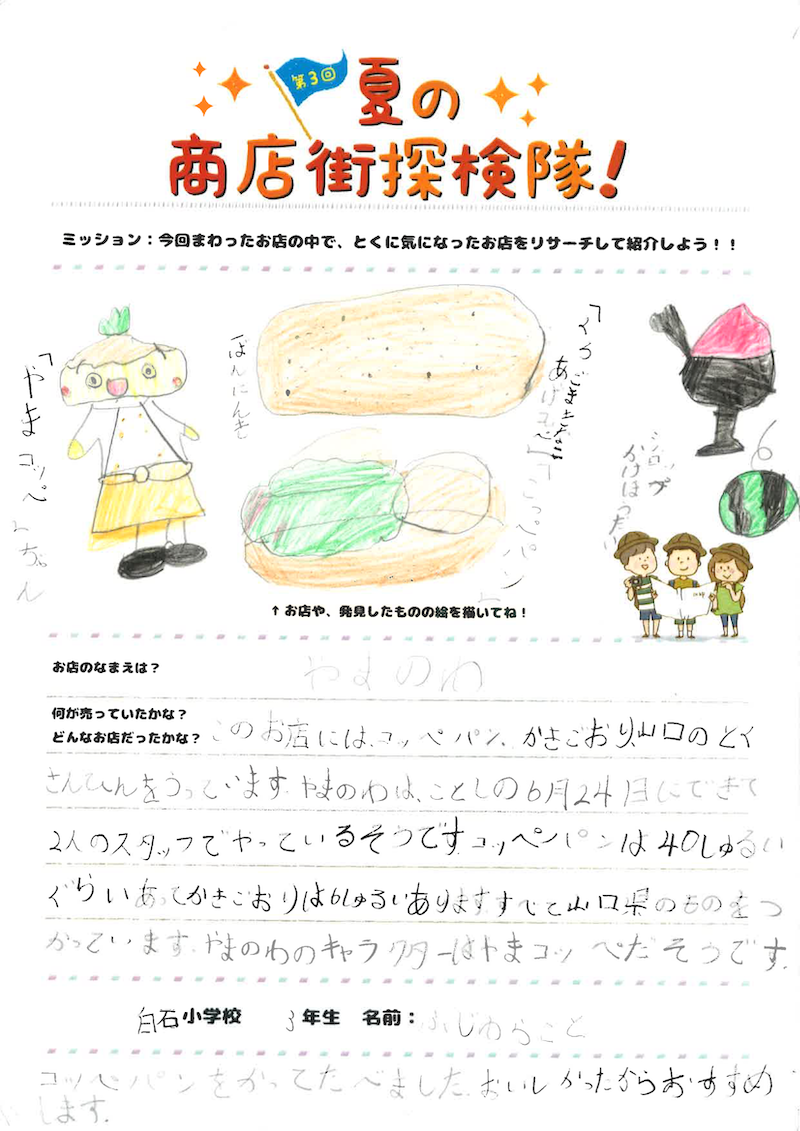 第3回
夏の
商店街探検隊!
ミッション:今回まわったお店の中で、とくに気になったお店をリサーチして紹介しよう!!
「やまコッペ
ちゃん
いちばんにんき
くろごまきなこ
あげコッペ」
コッペパン
シロップ
かけほうだい
6
↑お店や、発見したものの絵を描いてね!
お店のなまえは?
やまのわ
何が売っていたかな?
どんなお店だったかな?
このお店には、コッペパン、かきごおり、山口のとく
さんひんをうっています。やまのわは、ことしの6月24日にできて
2人のスタッフでやっているそうです。コッペパンは40しゅるい
ぐらいあってかきごおりは6しゅるいあります。すべて山口県のものをつ
かっています。やまのわのキャラクターはやまコッペだそうです。
白石小学校 3年生 名前:ふじわらこと
コッペパンをかってたべました。おいしかったからおすすめ
します。